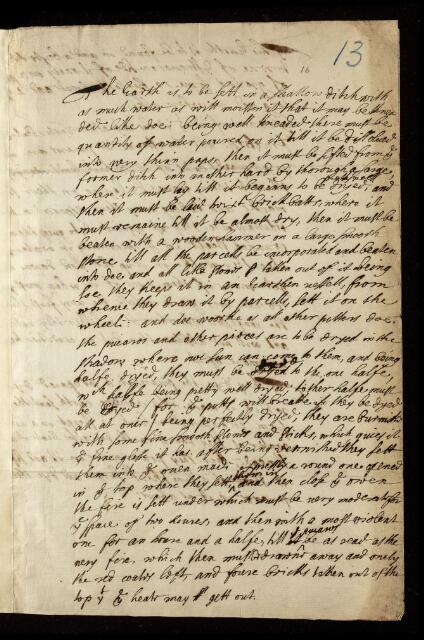 13
16
The Earth is to be sett in a shallow ditch with
as much water as will moisten it that it may be knea
ded like doe: being well kneaded there must be
quantity of water poured on it till it be dissolued
into very thinn papp, then it must be sifted from ye
former ditch into another hard by through a large
where it must be till it beginns to be dryed, and
then it must be laid brickbatts, where it
must remaine till it be almost dry, then it must be
beaten with a wooden hammer on a large smooth
stone till all the parcells be incorporated and beaten
into doe and all little stones taken out of it being
soe they keep it in an Earthen vessell, from
whence they draw it by parcells, sett it on the
wheel: and doe worke as all other potters doe.
the and other pieces are to be dryed in the
shadow where noe sun can come to them, and being
halfe dryed, they must be to the one halfe,
wch halfe being pretty well dryed, tother halfe must
be for ye will breake if they be dryed
all at once being perfectly dryed, they are burnisht
with some fine smooth flints and sticks, which gives it
ye fine glosse it has, after being burnished they sett
them into ye oven made a round one opened
in ye top where they sett and then close ye oven
the fire is sett under which must be very moderate for
ye space of two houres, and then with a most violent
one for an houre and a halfe, till be as read as the
very fire, which then must drawn away and onely
the red coales left, and foure bricks taken out of the
top yt ye heate may gett out.